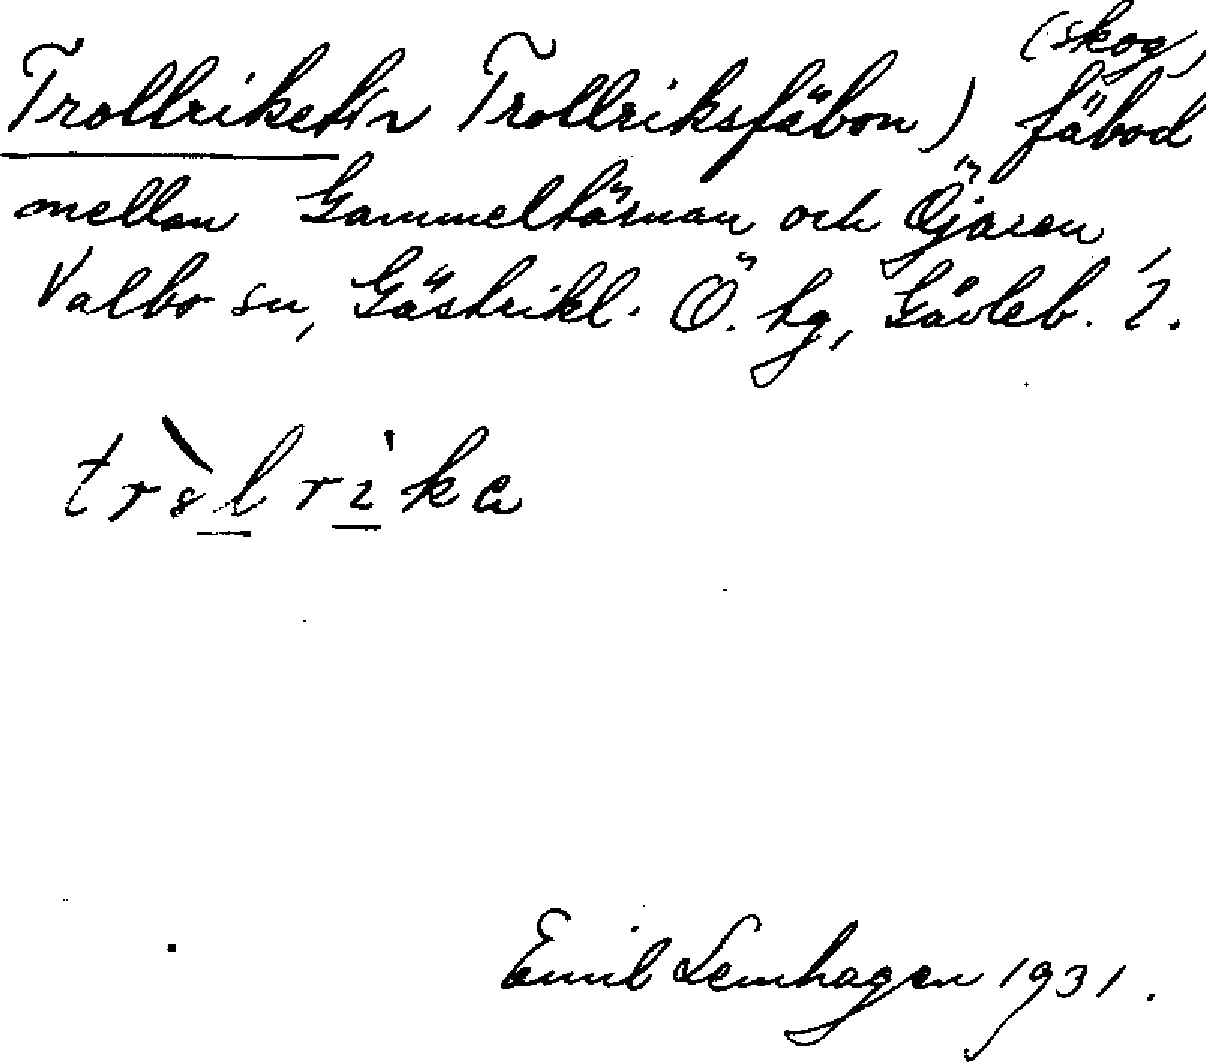 (skog,
Trollriket (n Trollriksfäbon) fäbod
mellan Gammeltärnan och Öjaren,
Valbo sn, Gästrikl. Ö. hg, Gävleb. l.
Emil Lemhagen 1931.